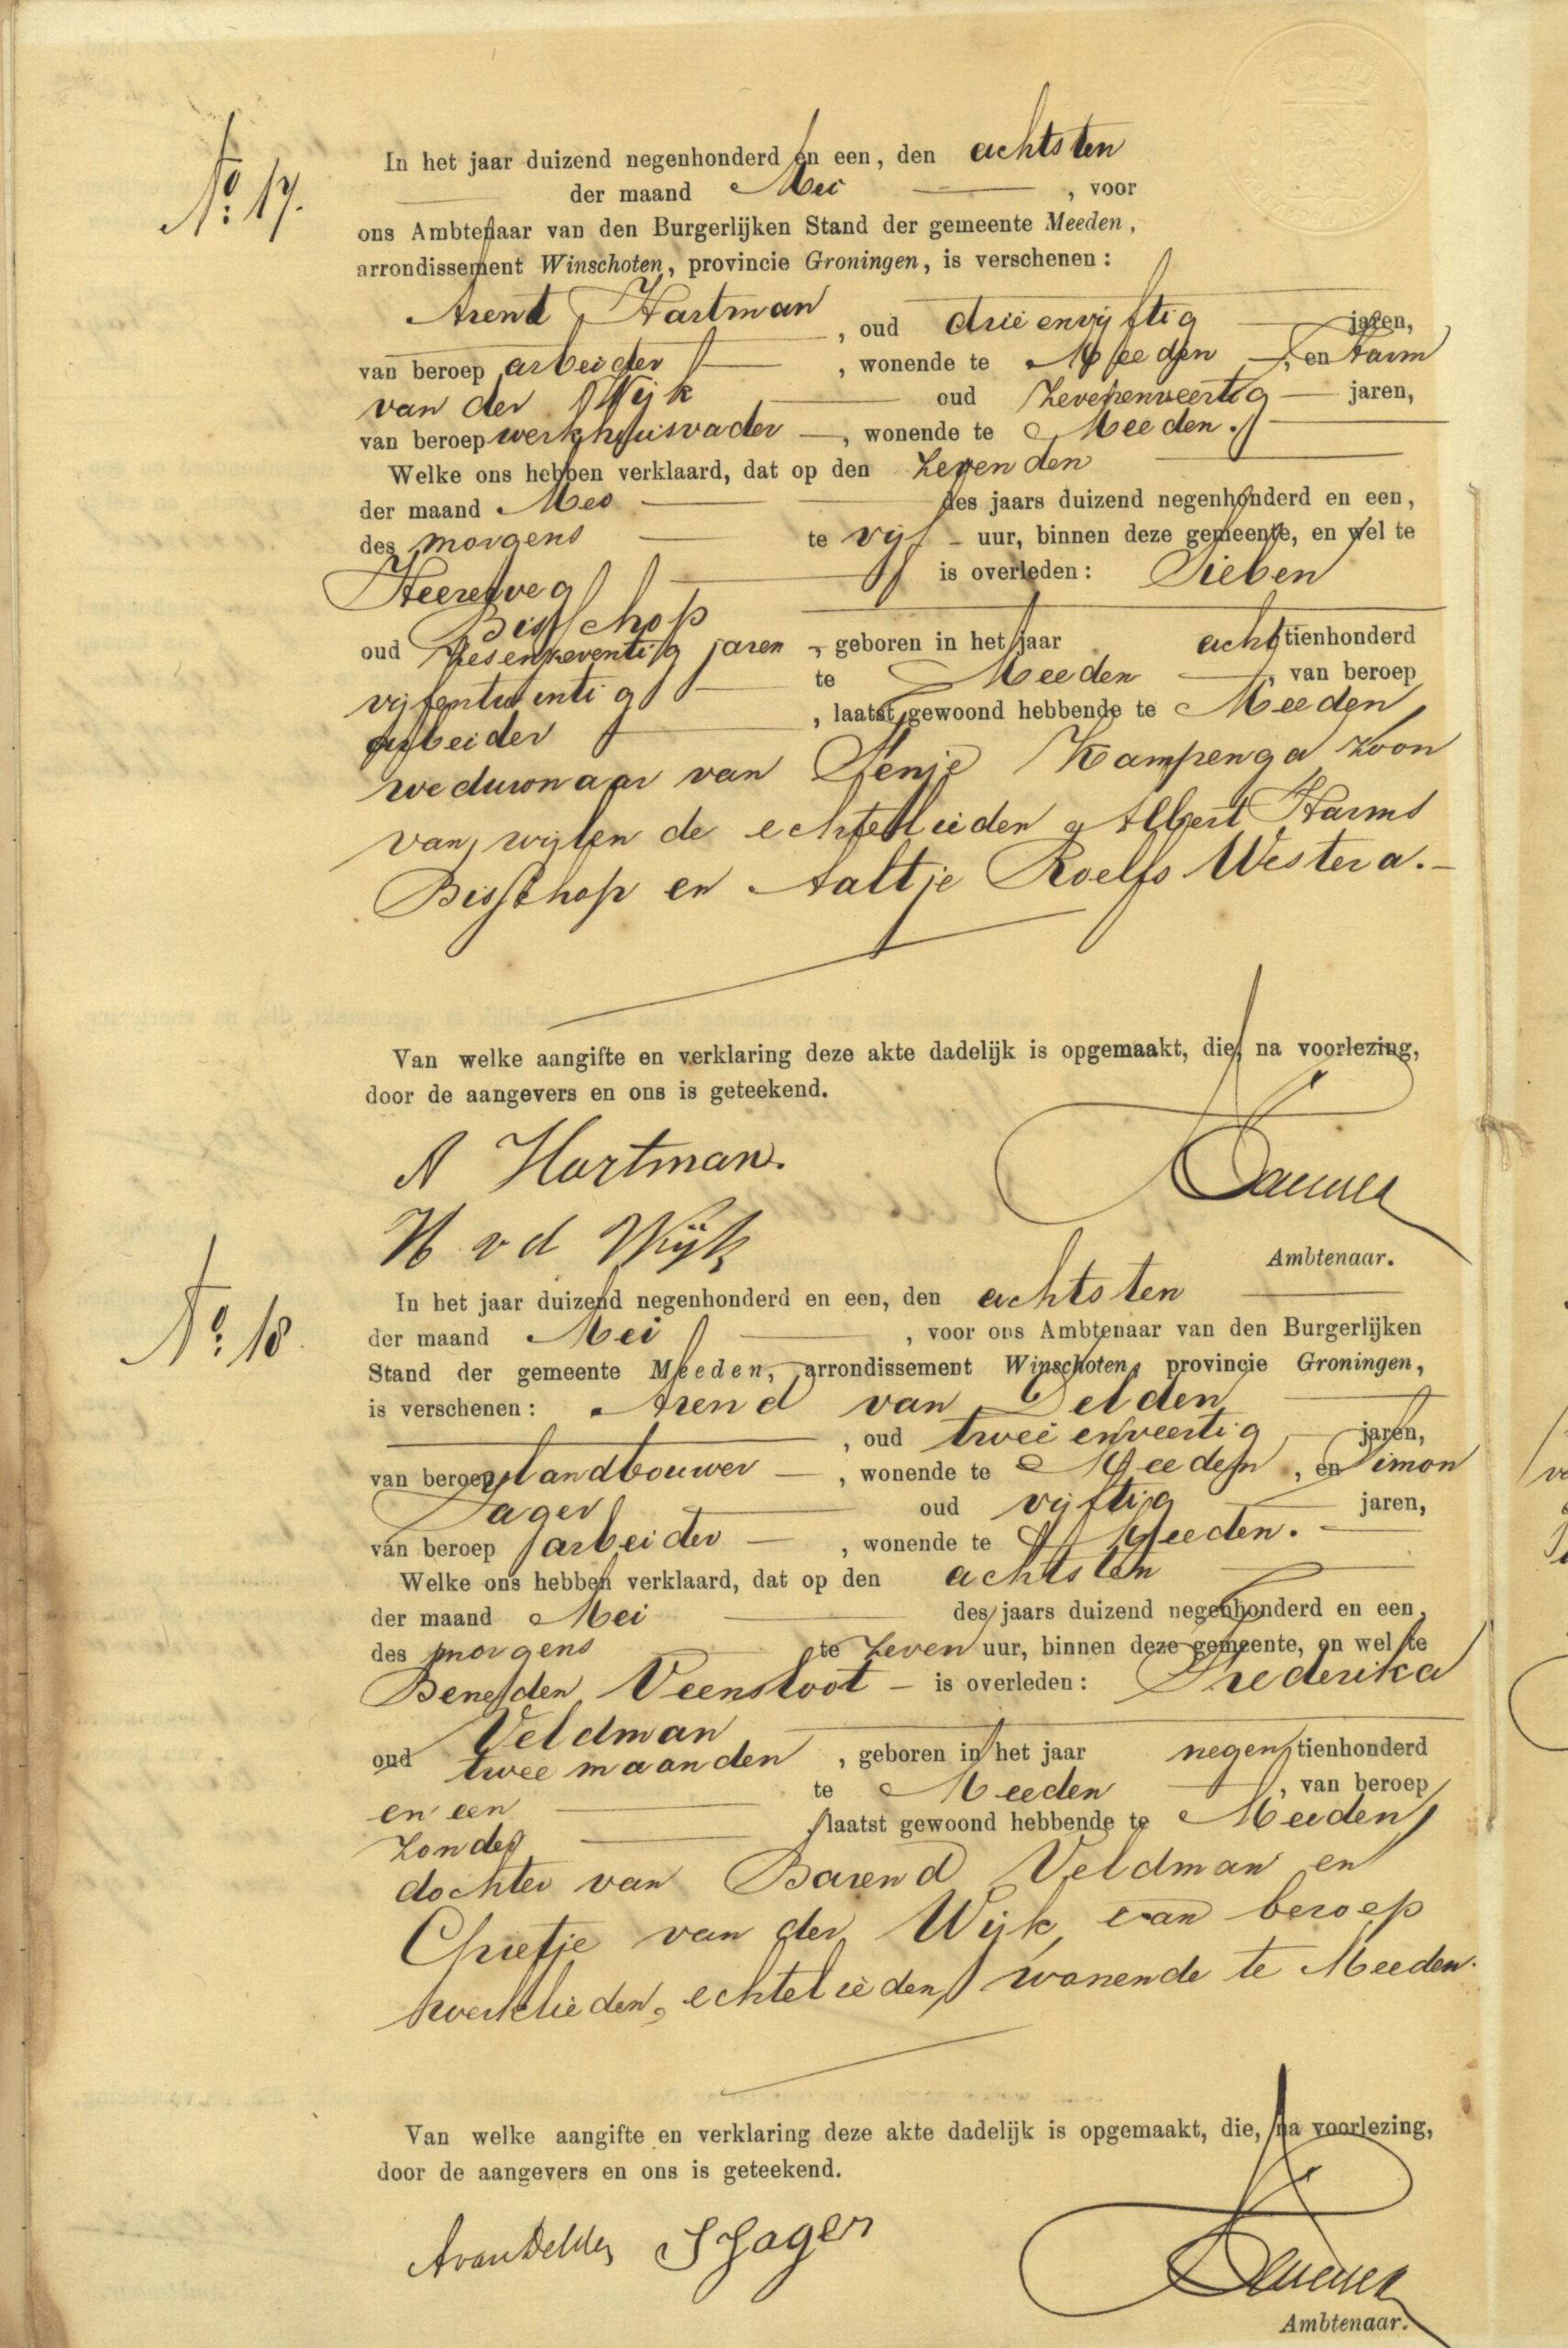 No. 17.
In het jaar duizend negenhonderd en een, den achtsten
der maand Mei, voor
ons Ambtenaar van den Burgerlijken Stand der gemeente Meeden,
arrondissement Winschoten, provincie Groningen, is verschenen:
Arend Hartman, oud drieenvijftig jaren,
van beroep arbeider, wonende te Meeden, en Harm
van der Wijk oud zevenenveertig jaren,
van beroep werkhuisvader, wonende te Meeden.
Welke ons hebben verklaard, dat op den zevenden
der maand Mei des jaars duizend negenhonderd en een,
des morgens te vijf uur, binnen deze gemeente, en wel te
Heereweg is overleden: Sieben
Bisschop
oud zesenzeventig jaren, geboren in het jaar achttienhonderd
vijfentwintig te Meeden, van beroep
arbeider, laatst gewoond hebbende te Meeden,
weduwnaar van Kampenga zoon
van wijlen de echtelieden Albert Harms
Bisschop en Aaltje Roelfs Westera.
Van welke aangifte en verklaring deze akte dadelijk is opgemaakt, die, na voorlezing,
door de aangevers en ons is geteekend.
A Hartman.
H v d Wijk
Ambtenaar.
No. 18.
In het jaar duizend negenhonderd en een, den achtsten
der maand Mei, voor ons Ambtenaar van den Burgerlijken
Stand der gemeente Meeden, arrondissement Winschoten, provincie Groningen,
is verschenen: Arend van Delden
, oud tweeenveertig jaren,
van beroep landbouwer, wonende te Meeden, en Simon
Jager oud vijftig jaren,
van beroep arbeider, wonende te Meeden.
Welke ons hebben verklaard, dat op den achtsten
der maand Mei des jaars duizend negenhonderd en een,
des morgens te zeven uur, binnen deze gemeente, en wel te
Beneden Veensloot is overleden: Frederika
Veldman
oud twee maanden, geboren in het jaar negentienhonderd
en een te Meeden, van beroep
zonder, laatst gewoond hebbende te Meeden,
dochter van Barend Veldman en
van der Wijk, van beroep
werklieden, echtelieden, wonende te Meeden.
Van welke aangifte en verklaring deze akte dadelijk is opgemaakt, die, na voorlezing,
door de aangevers en ons is geteekend.
A van Delden S Jager
Ambtenaar.